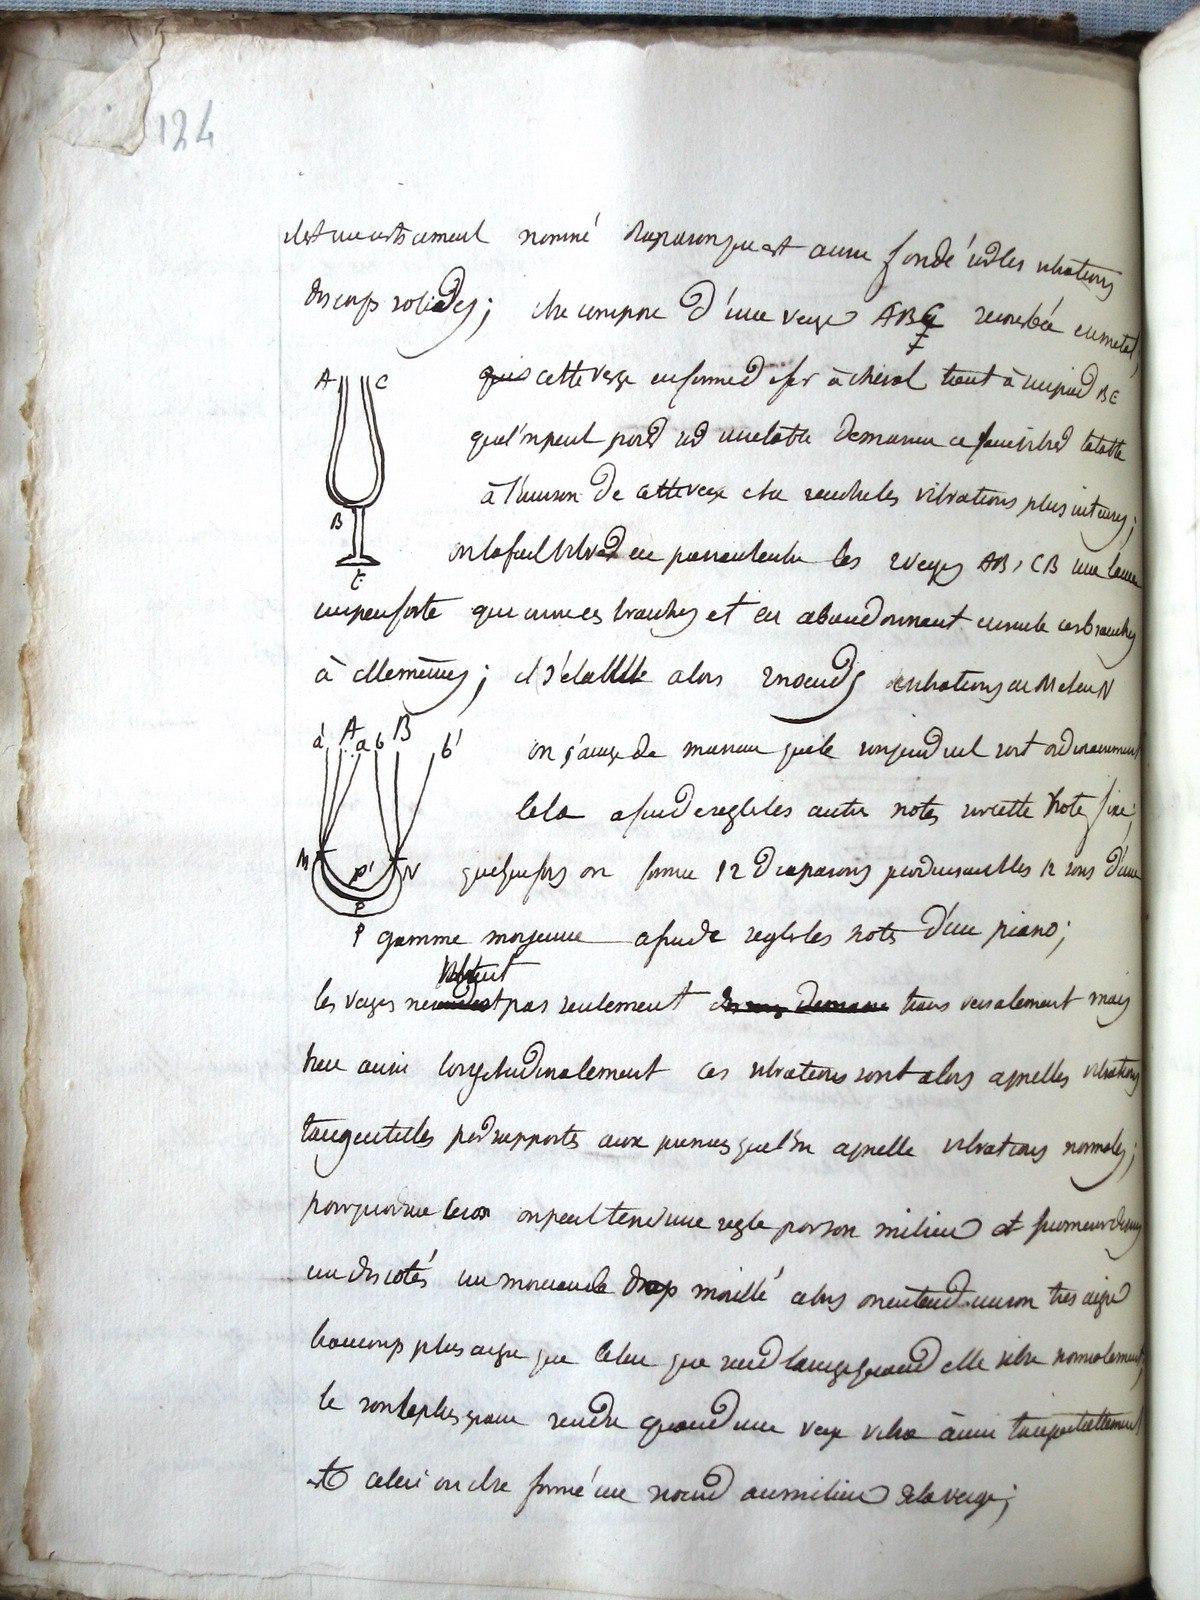 124
il est un instrument nommé diapason qui est aussi fondé sur les vibrations
des corps solides; il se compose d'une verge ABC recourbée en metal,
A C
qui cette verge en forme de fer à cheval tient à un pied BE
que l'on peut poser sur une table de maniere à faire vibrer la table
à l'unisson de cette verge et à rendre les vibrations plus intenses;
B
on la fait vibrer en passant entre les 2 verges AB, CB une lame
E
un peu forte que ces branches et en abandonnant ensuite ces branches
à elles mêmes; il s'etablit alors 2 noeuds de vibrations en M et en N
a' A a b B b'
on s'arrange de maniere que le son rendu soit ordinairement
le la afin de regler les autres notes sur cette note fixe;
M P' N
quelquefois on forme 12 diapasons produisant les 12 sons d'une
P
P gamme moyenne afin de regler les notes d'un piano;
vibrent
les verges ne pas seulement transversalement mais
bien aussi longitudinalement ces vibrations sont alors appellées vibrations
tangentielles par rapport aux premieres que l'on appelle vibrations normales;
pour produire le son on peut tenir une regle par son milieu et promener dessus
un des cotés un morceau de drap mouillé alors on entend un son très aigu
beaucoup plus aigu que celui que rend la verge quand elle vibre normalement,
le son le plus grave rendu quand une verge vibre ainsi tangentiellement
est celui où il se forme un noeud au milieu de la verge;